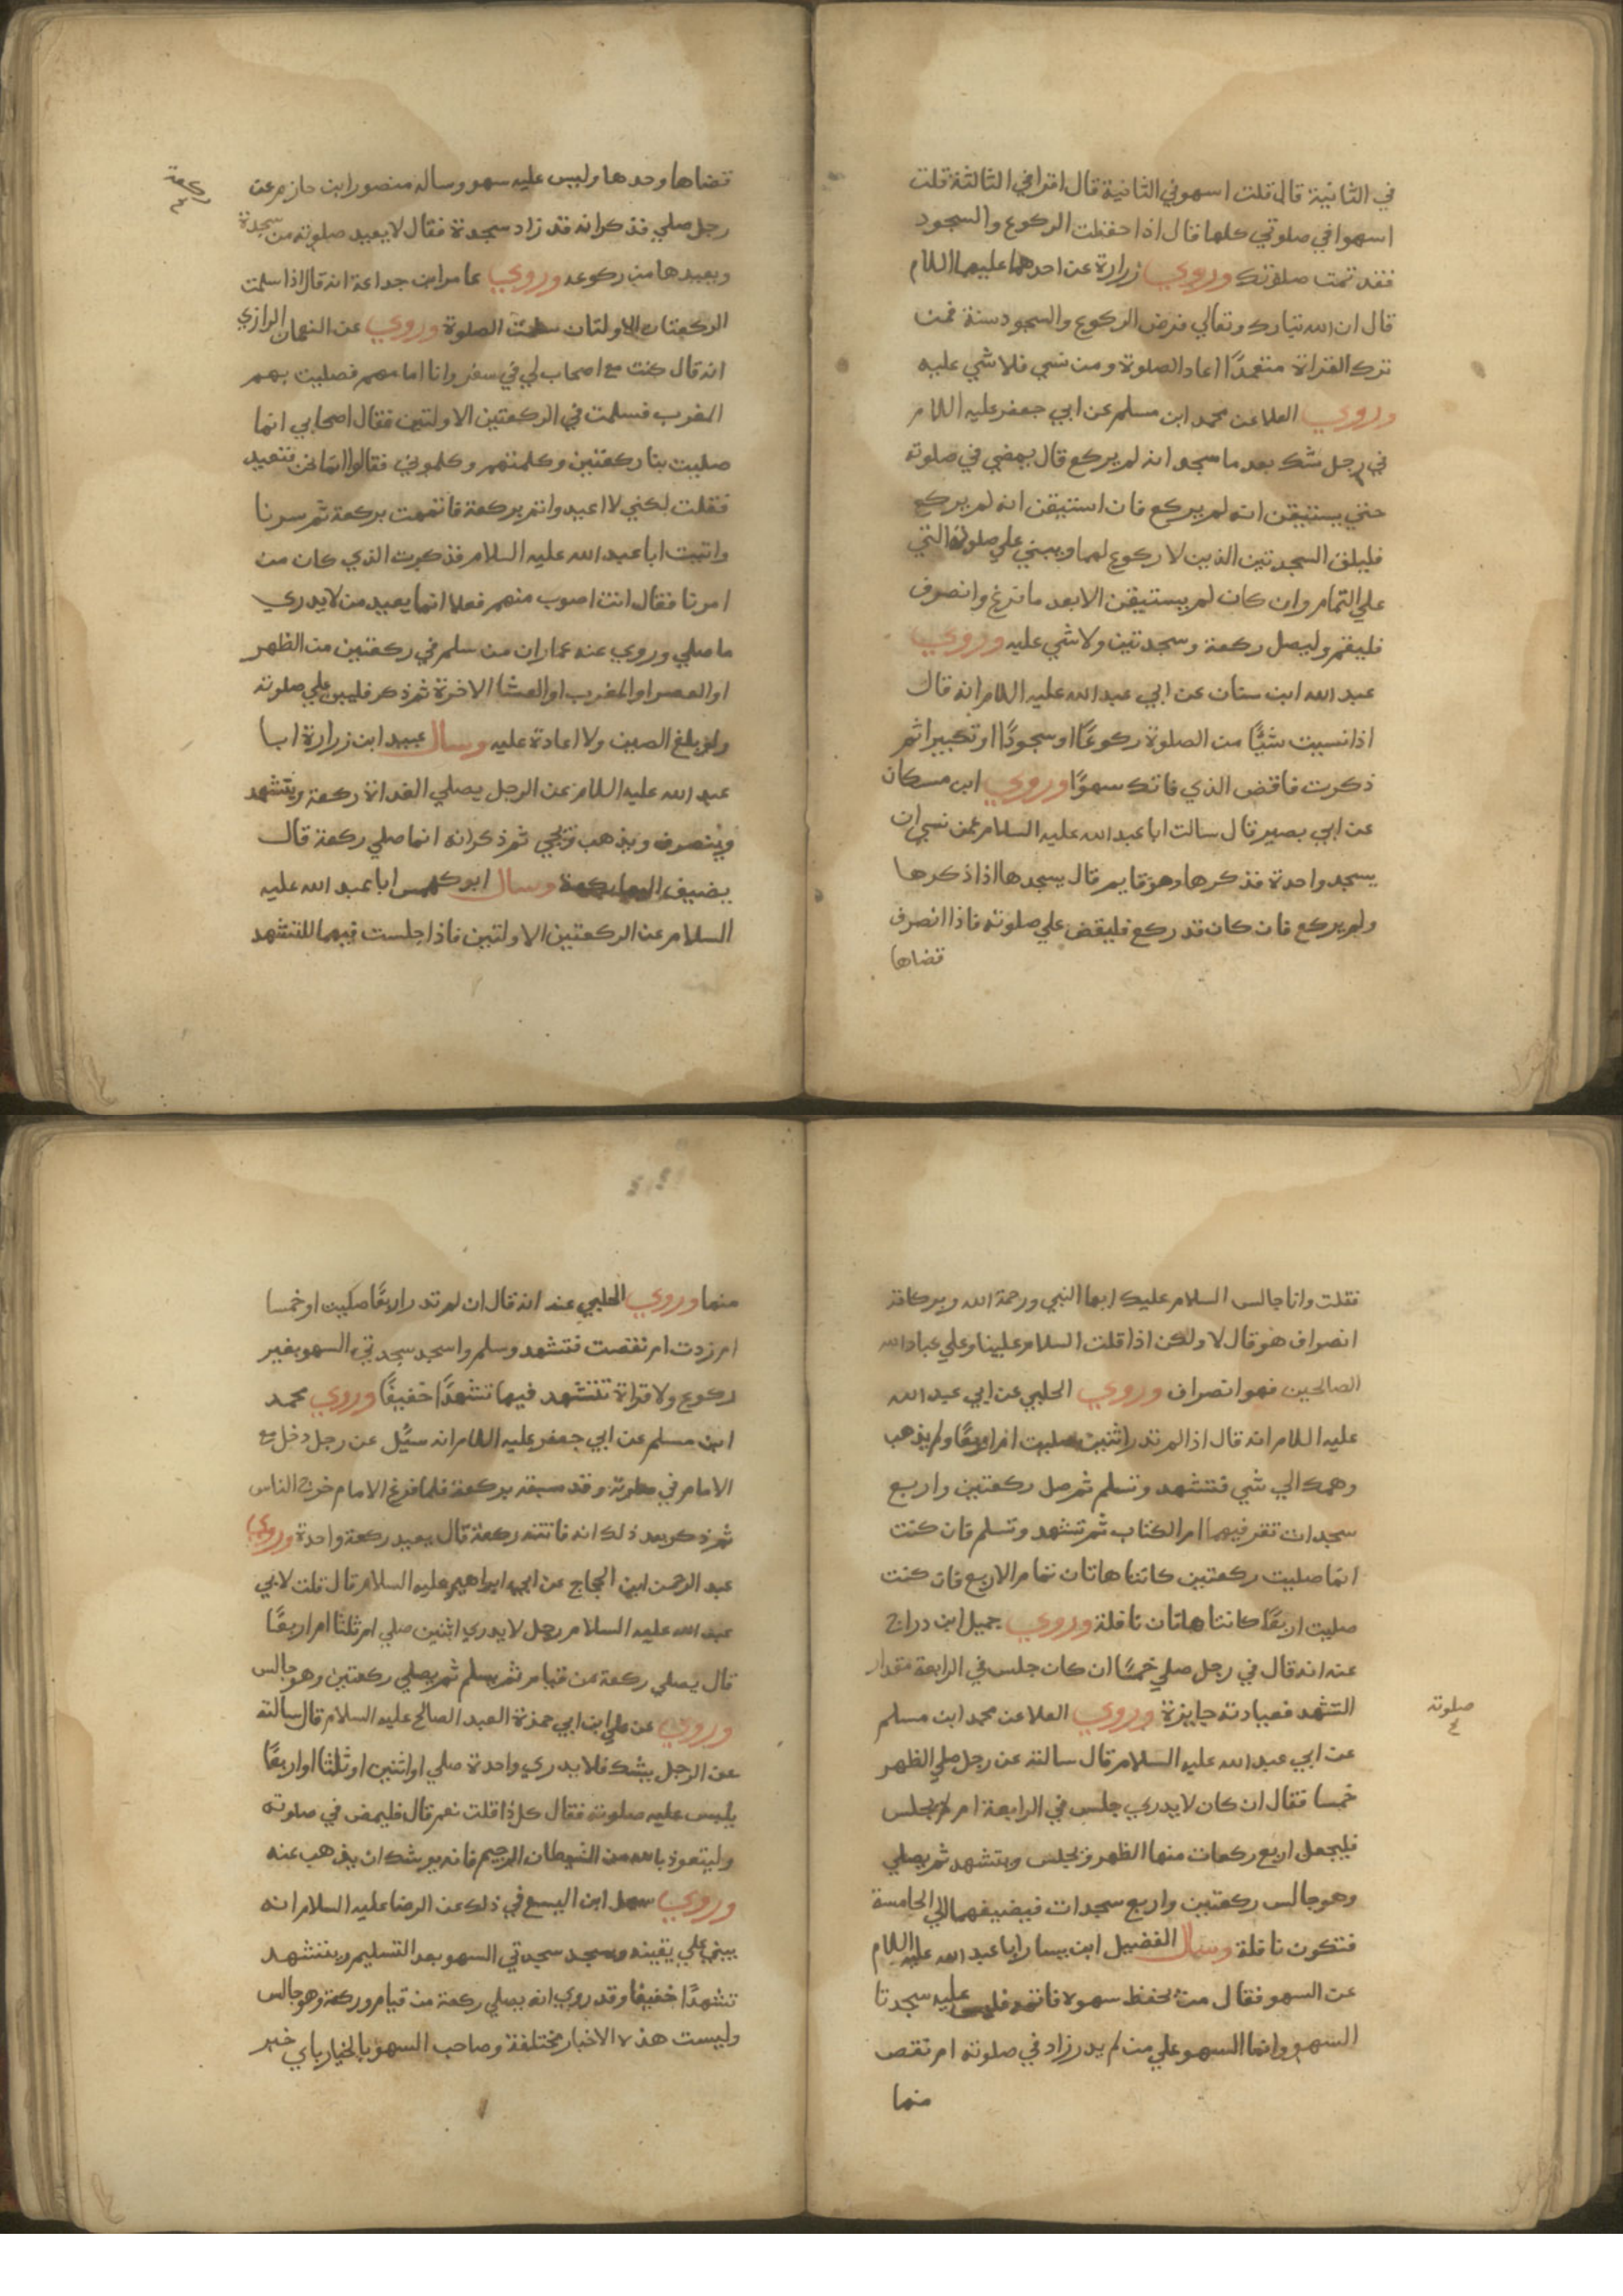 في الثانية قال قلت اسهو في الثانية قال اقرا في الثالثة قلت
اسهوا في صلوتي كلها قال اذا حفظت الركوع والسجود
فقد تمت صلوتك وروي زرارة عن احدهما عليهما اللام
قال ان الله تبارك وتعالي فرض الركوع والسجود سنة فمن
ترك القراة متعمدًا اعاد الصلوة ومن نسي فلا شي عليه
وروي العلا عن محمد ابن مسلم عن ابي جعفر عليه اللام
في رجل شك بعد ما سجد انه لم يركع قال يمضي في صلوته
حتي يستيقن انه لم يركع فان استيقن انه لم يركع
فليلق السجدتين الذين لا ركوع لهما ويبني علي صلوته التي
علي التمام وان كان لم يستيقن الا بعد ما فرغ وانصرف
فليقم وليصل ركعة وسجدتين ولا شي عليه وروي
عبد الله ابن سنان عن ابي عبد الله عليه اللام انه قال
اذا نسيت شيًا من الصلوة ركوعًا او سجودًا او تكبيرا ثم
ذكرت فاقض الذي فاتك سهوًا وروي ابن مسكان
عن ابي بصير قال سالت ابا عبد الله عليه السلام عمن نسي ان
يسجد واحدة فذكرها وهو قايم قال يسجدها اذا ذكرها
ولم يركع فان كان قد ركع فليقض علي صلوته فاذا انصرف
قضاها
قضاها وحدها وليس عليه سهو وساله منصور ابن حازم عن
رجل صلي فذكر انه قد زاد سجدة فقال لا يعيد صلوته من سجدة
ويعيدها من ركوعه وروي عامر ابن جداعة انه قال اذا سلمت
ركعة
الركعتان الاولتان سلمت الصلوة وروي عن النعمان الرازي
انه قال كنت مع اصحاب لي في سفر وانا امامهم فصليت بهم
المغرب فسلمت في الركعتين الاولتين فقال اصحابي انما
صليت بنا ركعتين وكلمتهم وكلموني فقالوا اما نحن فنعيد
فقلت لكني لا اعيد واتم بركعة فاتممت بركعة ثم سرنا
واتيت ابا عبد الله عليه السلام فذكرت الذي كان من
امرنا فقال انت اصوب منهم فعلا انما يعيد من لا يدري
ما صلي وروي عنه عمار ان من سلم في ركعتين من الظهر
او العصر او المغرب او العشا الاخرة ثم ذكر فليبن علي صلوته
ولو بلغ الصين ولا اعادة عليه وسال عبيد ابن زرارة ابا
عبد الله عليه اللام عن الرجل يصلي الغداة ركعة ويتشهد
وينصرف ويذهب ويجي ثم ذكر انه انما صلي ركعة قال
يضيف اليها ركعة وسال ابو كهمس ابا عبد الله عليه
السلام عن الركعتين الاولتين فاذا جلست فيهما للتشهد
فقلت وانا جالس السلام عليك ايها النبي ورحمة الله وبركاته
انصراف هو قال لا ولكن اذا قلت السلام علينا وعلي عباد الله
الصالحين فهو انصراف وروي الحلبي عن ابي عبد الله
عليه اللام انه قال اذا لم تدر اثنين صليت ام اربعًا ولم يذهب
وهمك الي شي فتشهد وتسلم ثم صل ركعتين واربع
سجدات تقر فيهما ام الكتاب ثم تشهد وتسلم فان كنت
انما صليت ركعتين كانتا هاتان تمام الاربع فان كنت
صليت اربعًا كانتا هاتان نافلة وروي جميل ابن دراج
عنه انه قال في رجل صلي خمسًا ان كان جلس في الرابعة مقدار
التشهد فعبادته جايزة وروي العلا عن محمد ابن مسلم
صلوته
عن ابي عبد الله عليه السلام قال سالته عن رجل صلي الظهر
خمسا فقال ان كان لا يدري جلس في الرابعة ام لم يجلس
فليجعل اربع ركعات منها الظهر ويجلس ويتشهد ثم يصلي
وهو جالس ركعتين واربع سجدات فيضيفهما الي الخامسة
فتكون نافلة وسال الفضيل ابن يسار ابا عبد الله عليه اللام
عن السهو فقال من يحفظ سهوه فاتمه فليس عليه سجدتا
السهو وانما السهو علي من لم يدر زاد في صلوته ام نقص
منها
منها وروي الحلبي عنه انه قال ان لم تدر اربعًا صليت او خمسا
ام زدت ام نقصت فتشهد وسلم واسجد سجدتي السهو بغير
ركوع ولا قراة تتشهد فيها تشهدًا خفيفًا وروي محمد
ابن مسلم عن ابي جعفر عليه اللام انه سيُل عن رجل دخل مع
الامام في صلوته وقد سبقه بركعة فلما فرغ الامام خرج الناس
ثم ذكر بعد ذلك انه فاتته ركعة قال يعيد ركعة واحدة وروي
عبد الرحمن ابن الحجاج عن ابي ابراهيم عليه السلام قال قلت لابي
عبد الله عليه السلام رجل لا يدري اثنين صلي ام ثلثا ام اربعًا
قال يصلي ركعة من قيام ثم يسلم ثم يصلي ركعتين وهو جالس
وروي عن علي ابن ابي حمزة العبد الصالح عليه السلام قال سالته
عن الرجل يشك فلا يدري واحدة صلي او اثنين او ثلثا او اربعًا
يلبس عليه صلوته فقال كل ذا قلت نعم قال فليمض في صلوته
وليتعوذ بالله من الشيطان الرجيم فانه يوشك ان يذهب عنه
وروي سهل ابن اليسع في ذلك عن الرضا عليه السلام انه
يبني علي يقينه ويسجد سجدتي السهو بعد التسليم ويتشهد
تشهدًا خفيفا وقد روي انه يصلي ركعة من قيام وركعة وهو جالس
وليست هذه الاخبار مختلفة وصاحب السهو بالخيار باي خبر